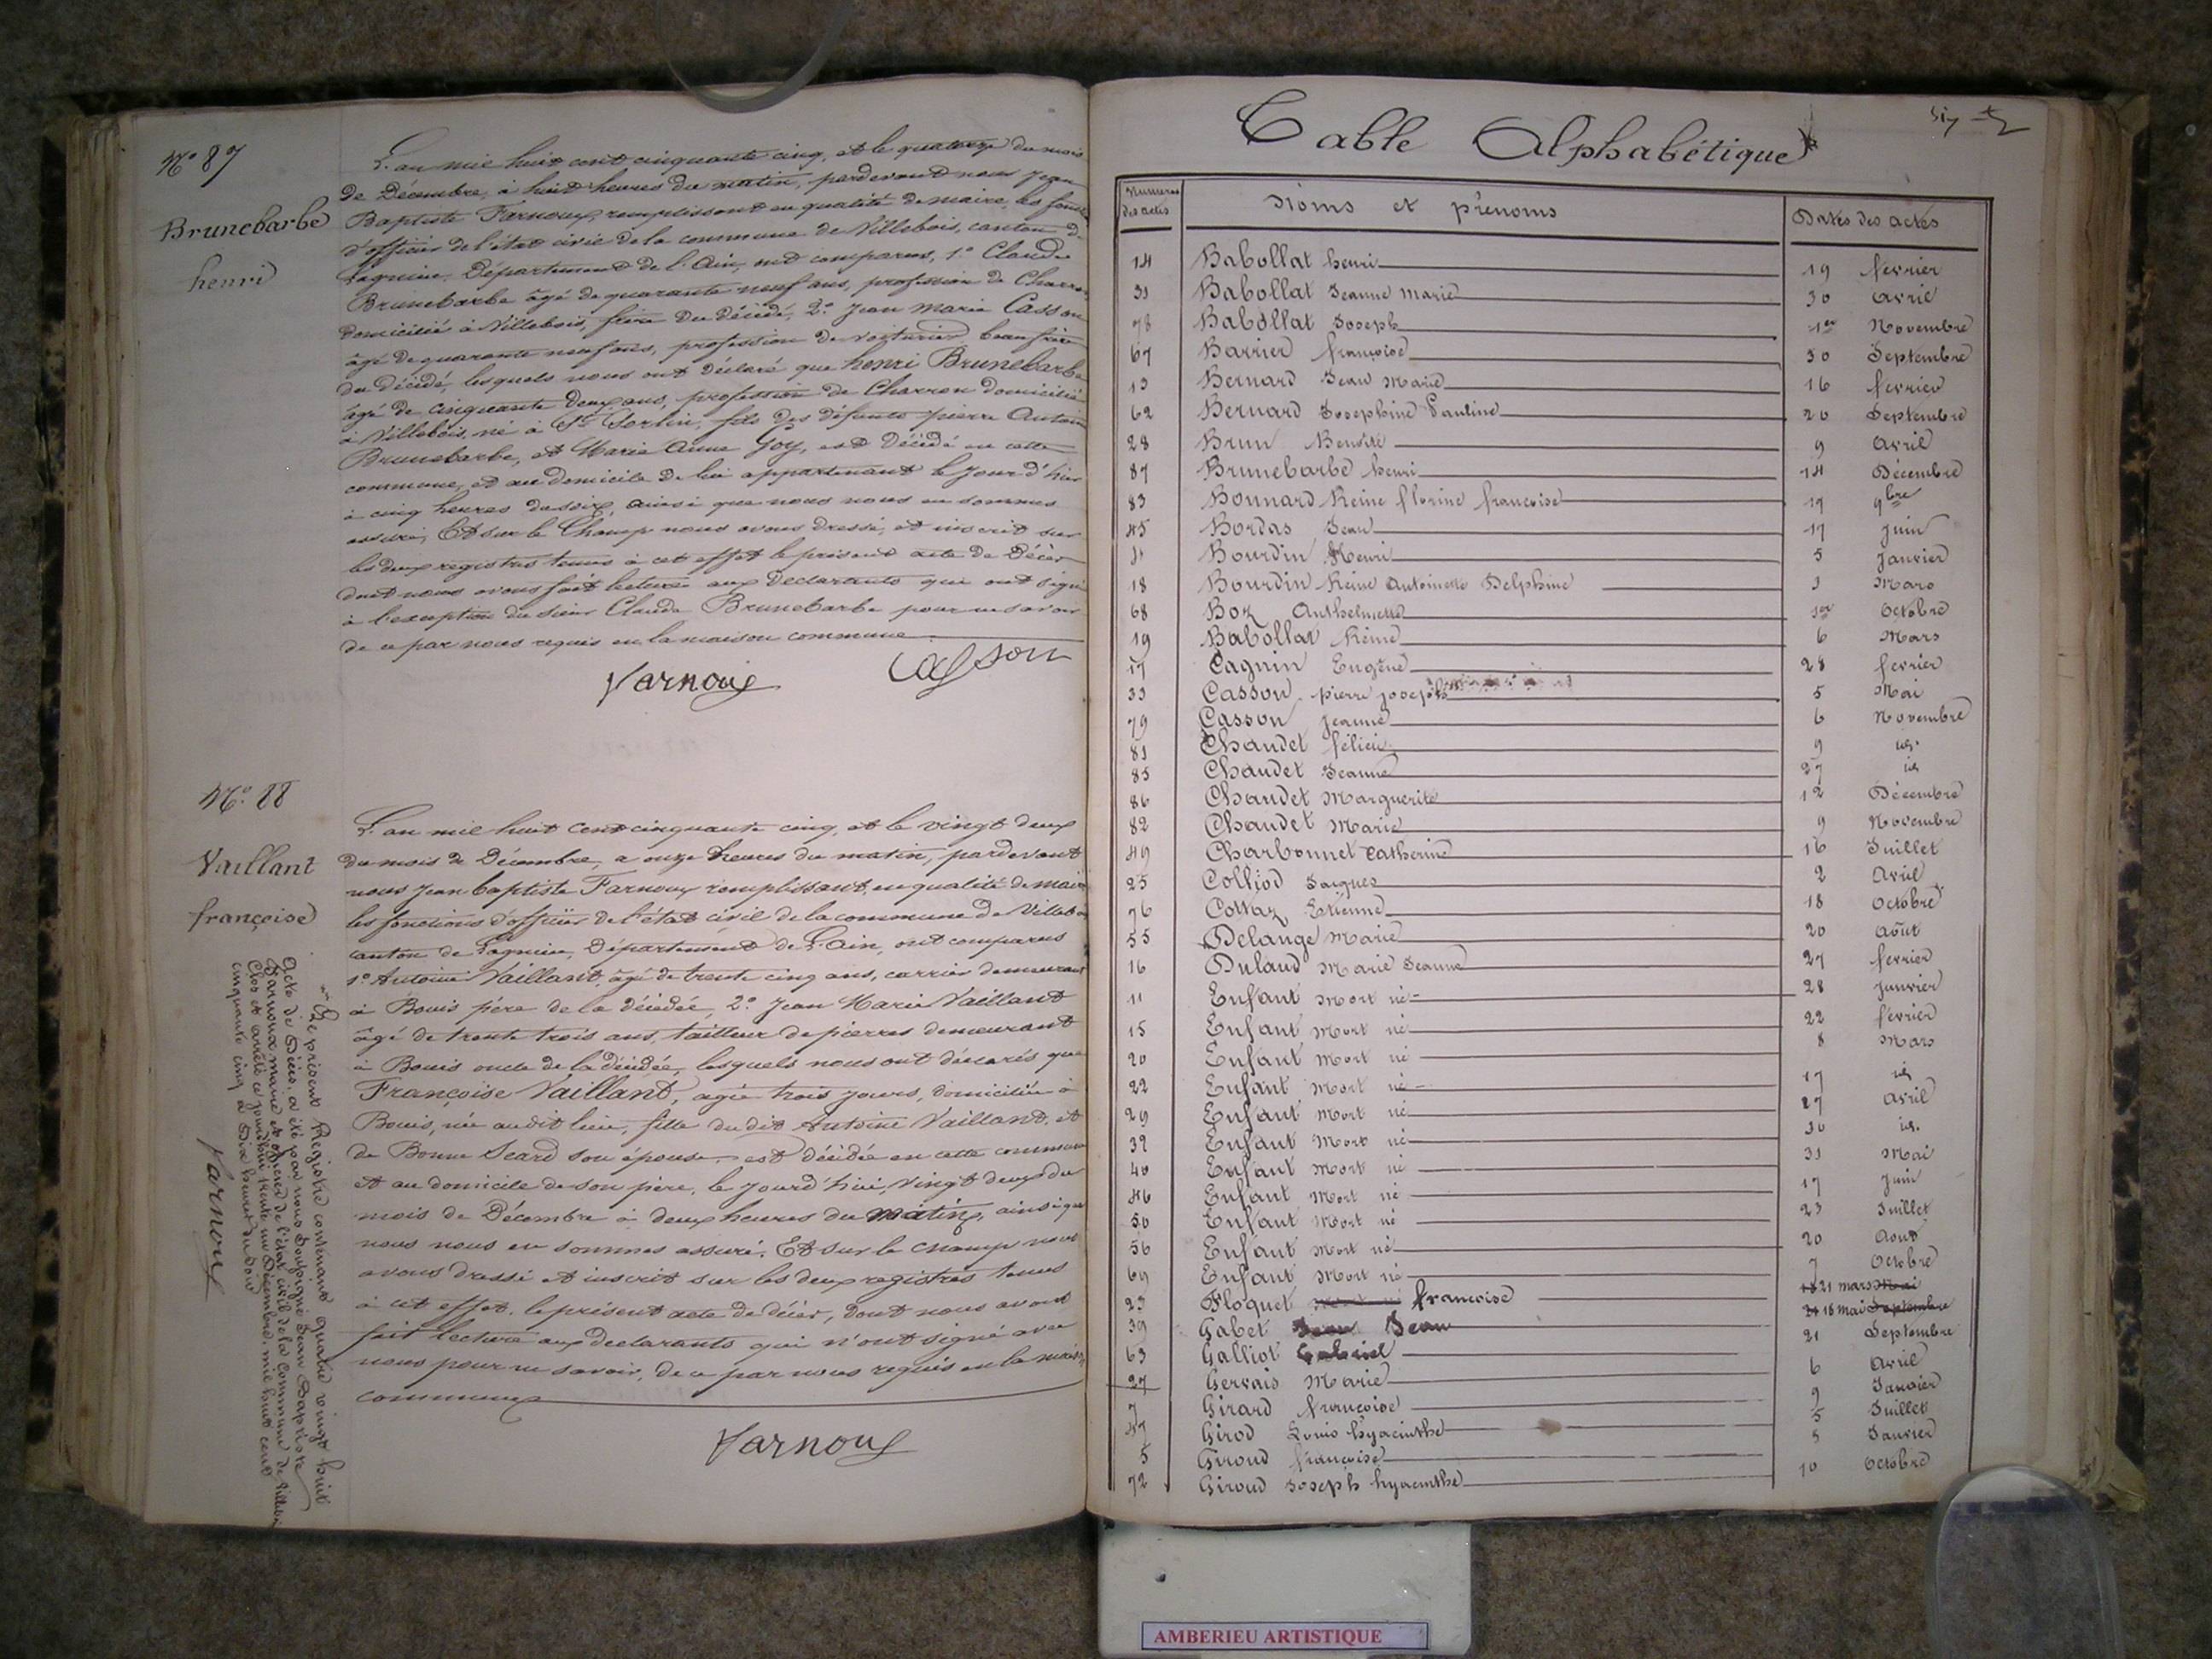 N° 87
Brunebarbe
henri
L'an mil huit cent cinquante cinq, et le quatorze du mois
de Décembre, à huit heures du matin, pardevant nous Jean
Baptiste Farnoux, remplissant en qualité de maire, les foncti
d'officier de l'état civil de la commune de Villebois, canton de
Lagnieu, Département de l'Ain, ont comparus, 1° Claude
Brunebarbe âgé de quarante neuf ans, profession de Charron
domicilié à Villebois, frère du décédé, 2° Jean Marie Casson
âgé de quarante neuf ans, profession de voiturier, beau frère
du décédé, lesquels nous ont déclaré que henri Brunebarbe
âgé de cinquante deux ans, profession de Charron domicilié
à Villebois, né à St Sorlin, fils des défunts pierre Antoine
Brunebarbe, et Marie Anne Joy, est décédé en cette
commune, et au domicile de lui appartenant le jour d'hier
à cinq heures du soir, ainsi que nous nous en sommes
assuré, Et sur le Champ nous avons dressé, et inscrit sur
les deux registres tenus à cet effet le présent acte de Décès
dont nous avons fait lecture aux Declarants qui ont signé
à l'exception du sieur Claude Brunebarbe pour ne savoir
de ce par nous requis en la maison commune
Farnoux Casson
N° 88
Vaillant
françoise
L'an mil huit cent cinquante cinq, et le vingt deux
du mois de Décembre, a onze heures du matin, pardevant
nous Jean baptiste Farnoux remplissant, en qualité de maire
les fonctions d'officier de l'état civil de la commune de Villebois
canton de Lagnieu, Département de L'Ain, ont comparus
1° Antoine Vaillant, âgé de trente cinq ans, carrier demeurant
à Bouis père de la décédée, 2° Jean Marie Vaillant
âgé de trente trois ans, tailleur de pierres demeurant
à Bouis oncle de la décédée, lesquels nous ont déclarés que
Françoise Vaillant, agée trois jours, domiciliée à
Bouis, née audit lieu, fille dudit Antoine Vaillant, et
de Bonne Seard son épouse, est décédée en cette commune
et au domicile de son père, le jourd'hui, vingt deux du
mois de Décembre à deux heures du matin, ainsi que
nous nous en sommes assuré. Et sur le champ nous
avons dressé et inscrit sur les deux registres tenus
à cet effet, le présent acte de décès, dont nous avons
fait lecture aux declarants qui n'ont signé avec
nous pour ne savoir, de ce par nous requis en la maison
commune
Farnoux
Le présent Registre contenant quatre vingt huit
Acte de Décès, a été par nous soussigné Jean Baptiste
Farnoux maire et officier de l'état civil de la Commune de Villebois
Clos et arrêté ce jourd'hui trente un Décembre mil huit cent
cinquante cinq à Dix heures du soir
Farnoux
Table Alphabétique
Numeros des actes Noms et prénoms Dates des actes
14 Babollat henri 19 février
31 Babollat Jeanne Marie 30 avril
78 Babollat Joseph 1er Novembre
67 Barrier françoise 30 Septembre
13 Bernard Jean Marie 16 fevrier
62 Bernard Josephine Pauline 20 Septembre
28 Brun Benoite 9 avril
87 Brunebarbe henri 14 Décembre
83 Bonnard Reine florine françoise 19 9bre
45 Bordas Jean 17 juin
Bourdin Henri 5 janvier
18 Bourdin Reine Antoinette Delphine 3 Mars
68 Boz Anthelmette 1er Octobre
19 Babollat Reine 6 Mars
17 Cagnin Eugène 28 fevrier
33 Casson pierre joseph 5 Mai
79 Casson jeanne 6 Novembre
81 Chaudet félicie 9 id.
85 Chaudet Jeanne 27 id
86 Chaudet Marguerite 12 Décembre
82 Chaudet Marie 9 Novembre
49 Charbonnet Catherine 16 Juillet
25 Colliod Jacques 2 Avril
76 Cottaz Etienne 18 Octobre
55 Delange Marie 20 août
16 Dulaud Marie Jeanne 27 fevrier
11 Enfant Mort né 28 janvier
15 Enfant Mort né 22 février
20 Enfant Mort né 8 Mars
22 Enfant Mort né 17 id
29 Enfant Mort né 27 avril
32 Enfant Mort né 30 id.
40 Enfant Mort né 31 Mai
46 Enfant Mort né 17 juin
50 Enfant Mort né 23 Juillet
56 Enfant Mort né 20 Aout
69 Enfant Mort né 7 Octobre
23 Floquet francoise 21 mars Mai
39 Gabet Jean Jean 18 mai Septembre
63 Galliot Gabriel 21 Septembre
27 Gervais Marie 6 Avril
7 Girard françoise 9 Janvier
47 Girod Louis hyacinthe 5 Juillet
5 Giroud françoise 5 Janvier
72 Giroud Joseph hyacinthe 10 Octobre
AMBERIEU ARTISTIQUE